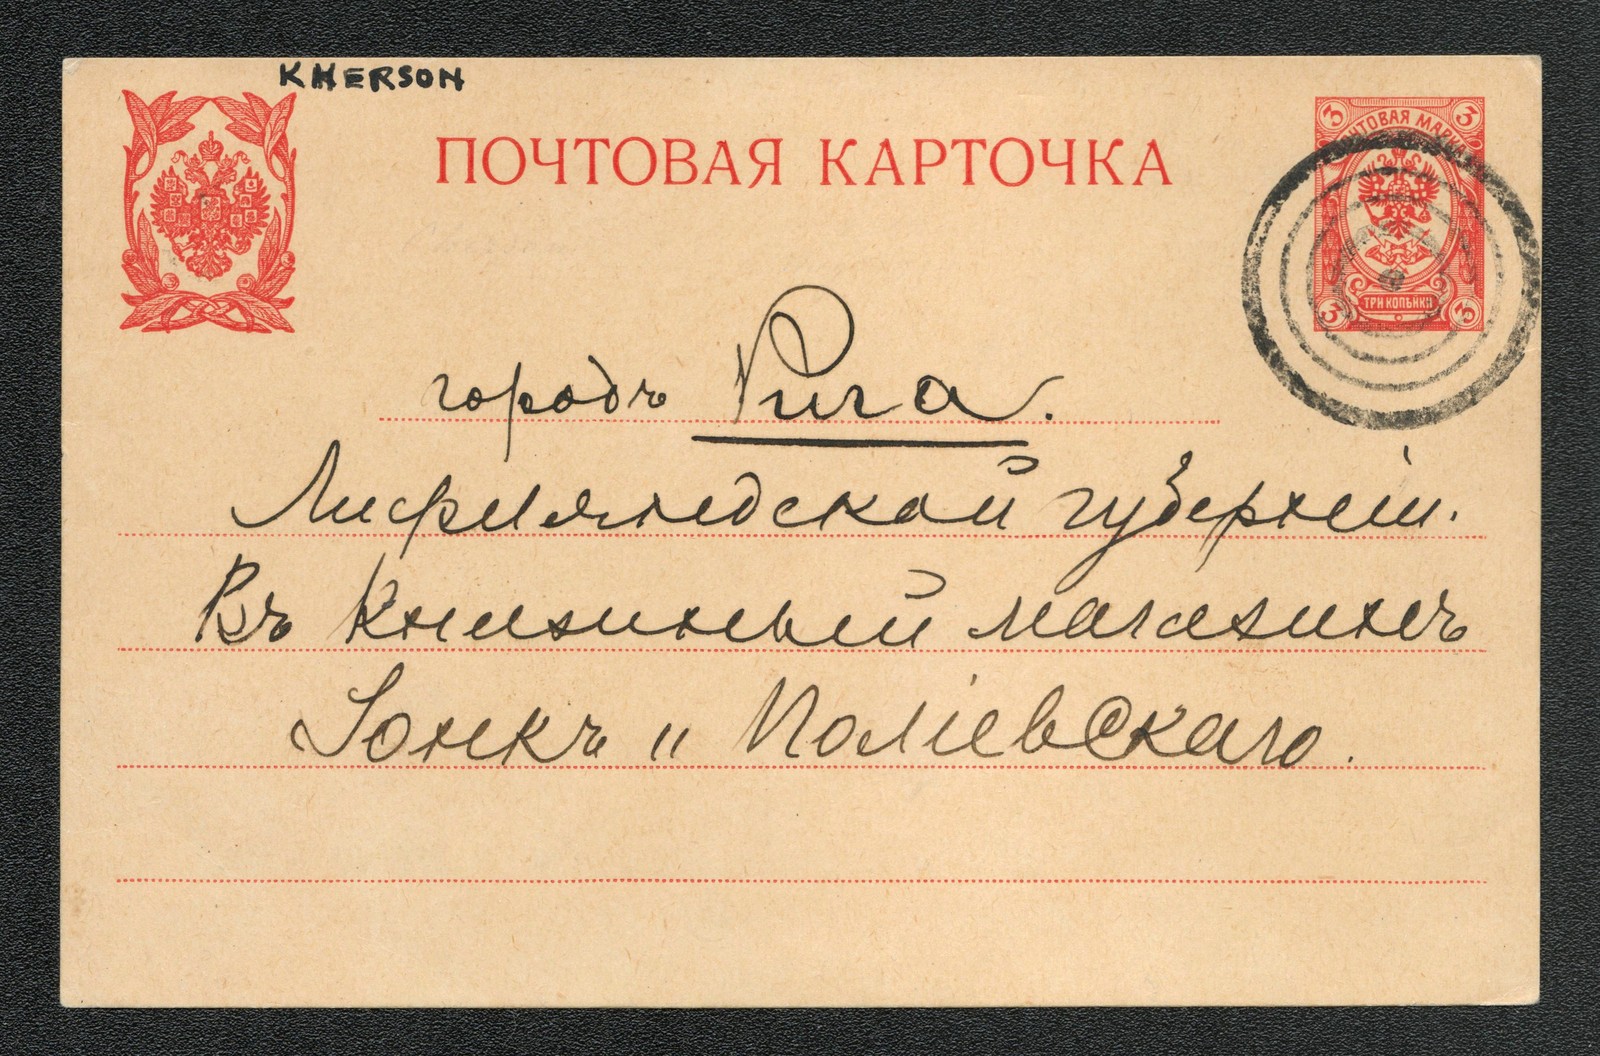 KHERSON
ПОЧТОВАЯ КАРТОЧКА
3 ПОЧТОВАЯ МАРКА 3
3 ТРИ КОПѢЙКИ 3
городъ Рига.
Лифляндской губерніи.
Въ Книжный магазинъ
Іонкъ и Поліевскаго.